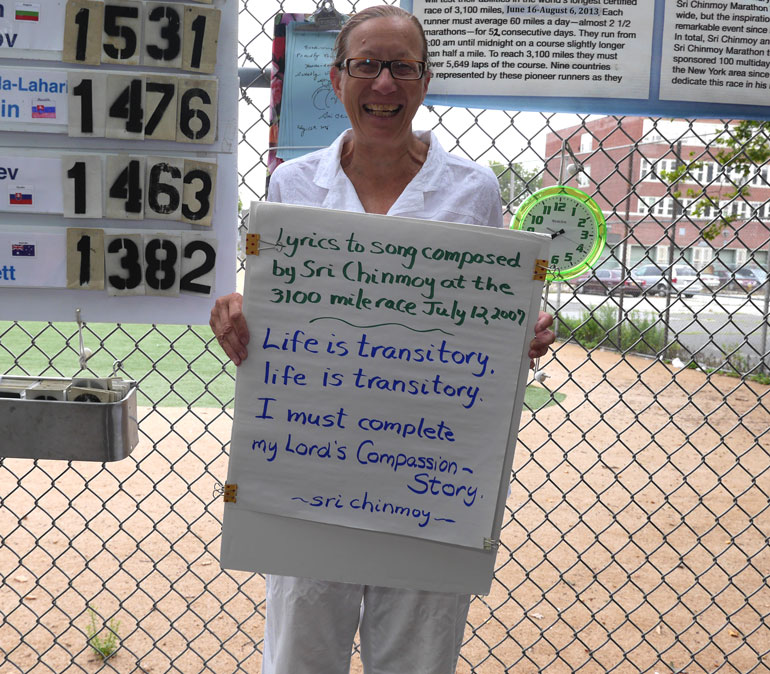 1531
ov
da-Lahari
in
1476
ev
1463
ett
1382
test their abilities in the world's longest certified
race of 3,100 miles, June 16-August 6, 2013 Each
runner must average 60 miles a day—almost 2 1/2
marathons—for 52 consecutive days. They run from
00 am until midnight on a course slightly longer
an half a mile. To reach 3,100 miles they must
e over 5,649 laps of the course. Nine countries
represented by these pioneer runners as they
wide, but the inspiratio
remarkable event since
In total, Sri Chinmoy an
Sri Chinmoy Marathon
sponsored 100 multiday
the New York area since
dedicate this race in his
12
11
10
9
8
7
6
5
4
3
2
1
Lyrics to song composed
by Sri Chinmoy at the
3100 mile race July 12, 2007
Life is transitory,
life is transitory.
I must complete
my Lord's Compassion-
Story.
~sri chinmoy~